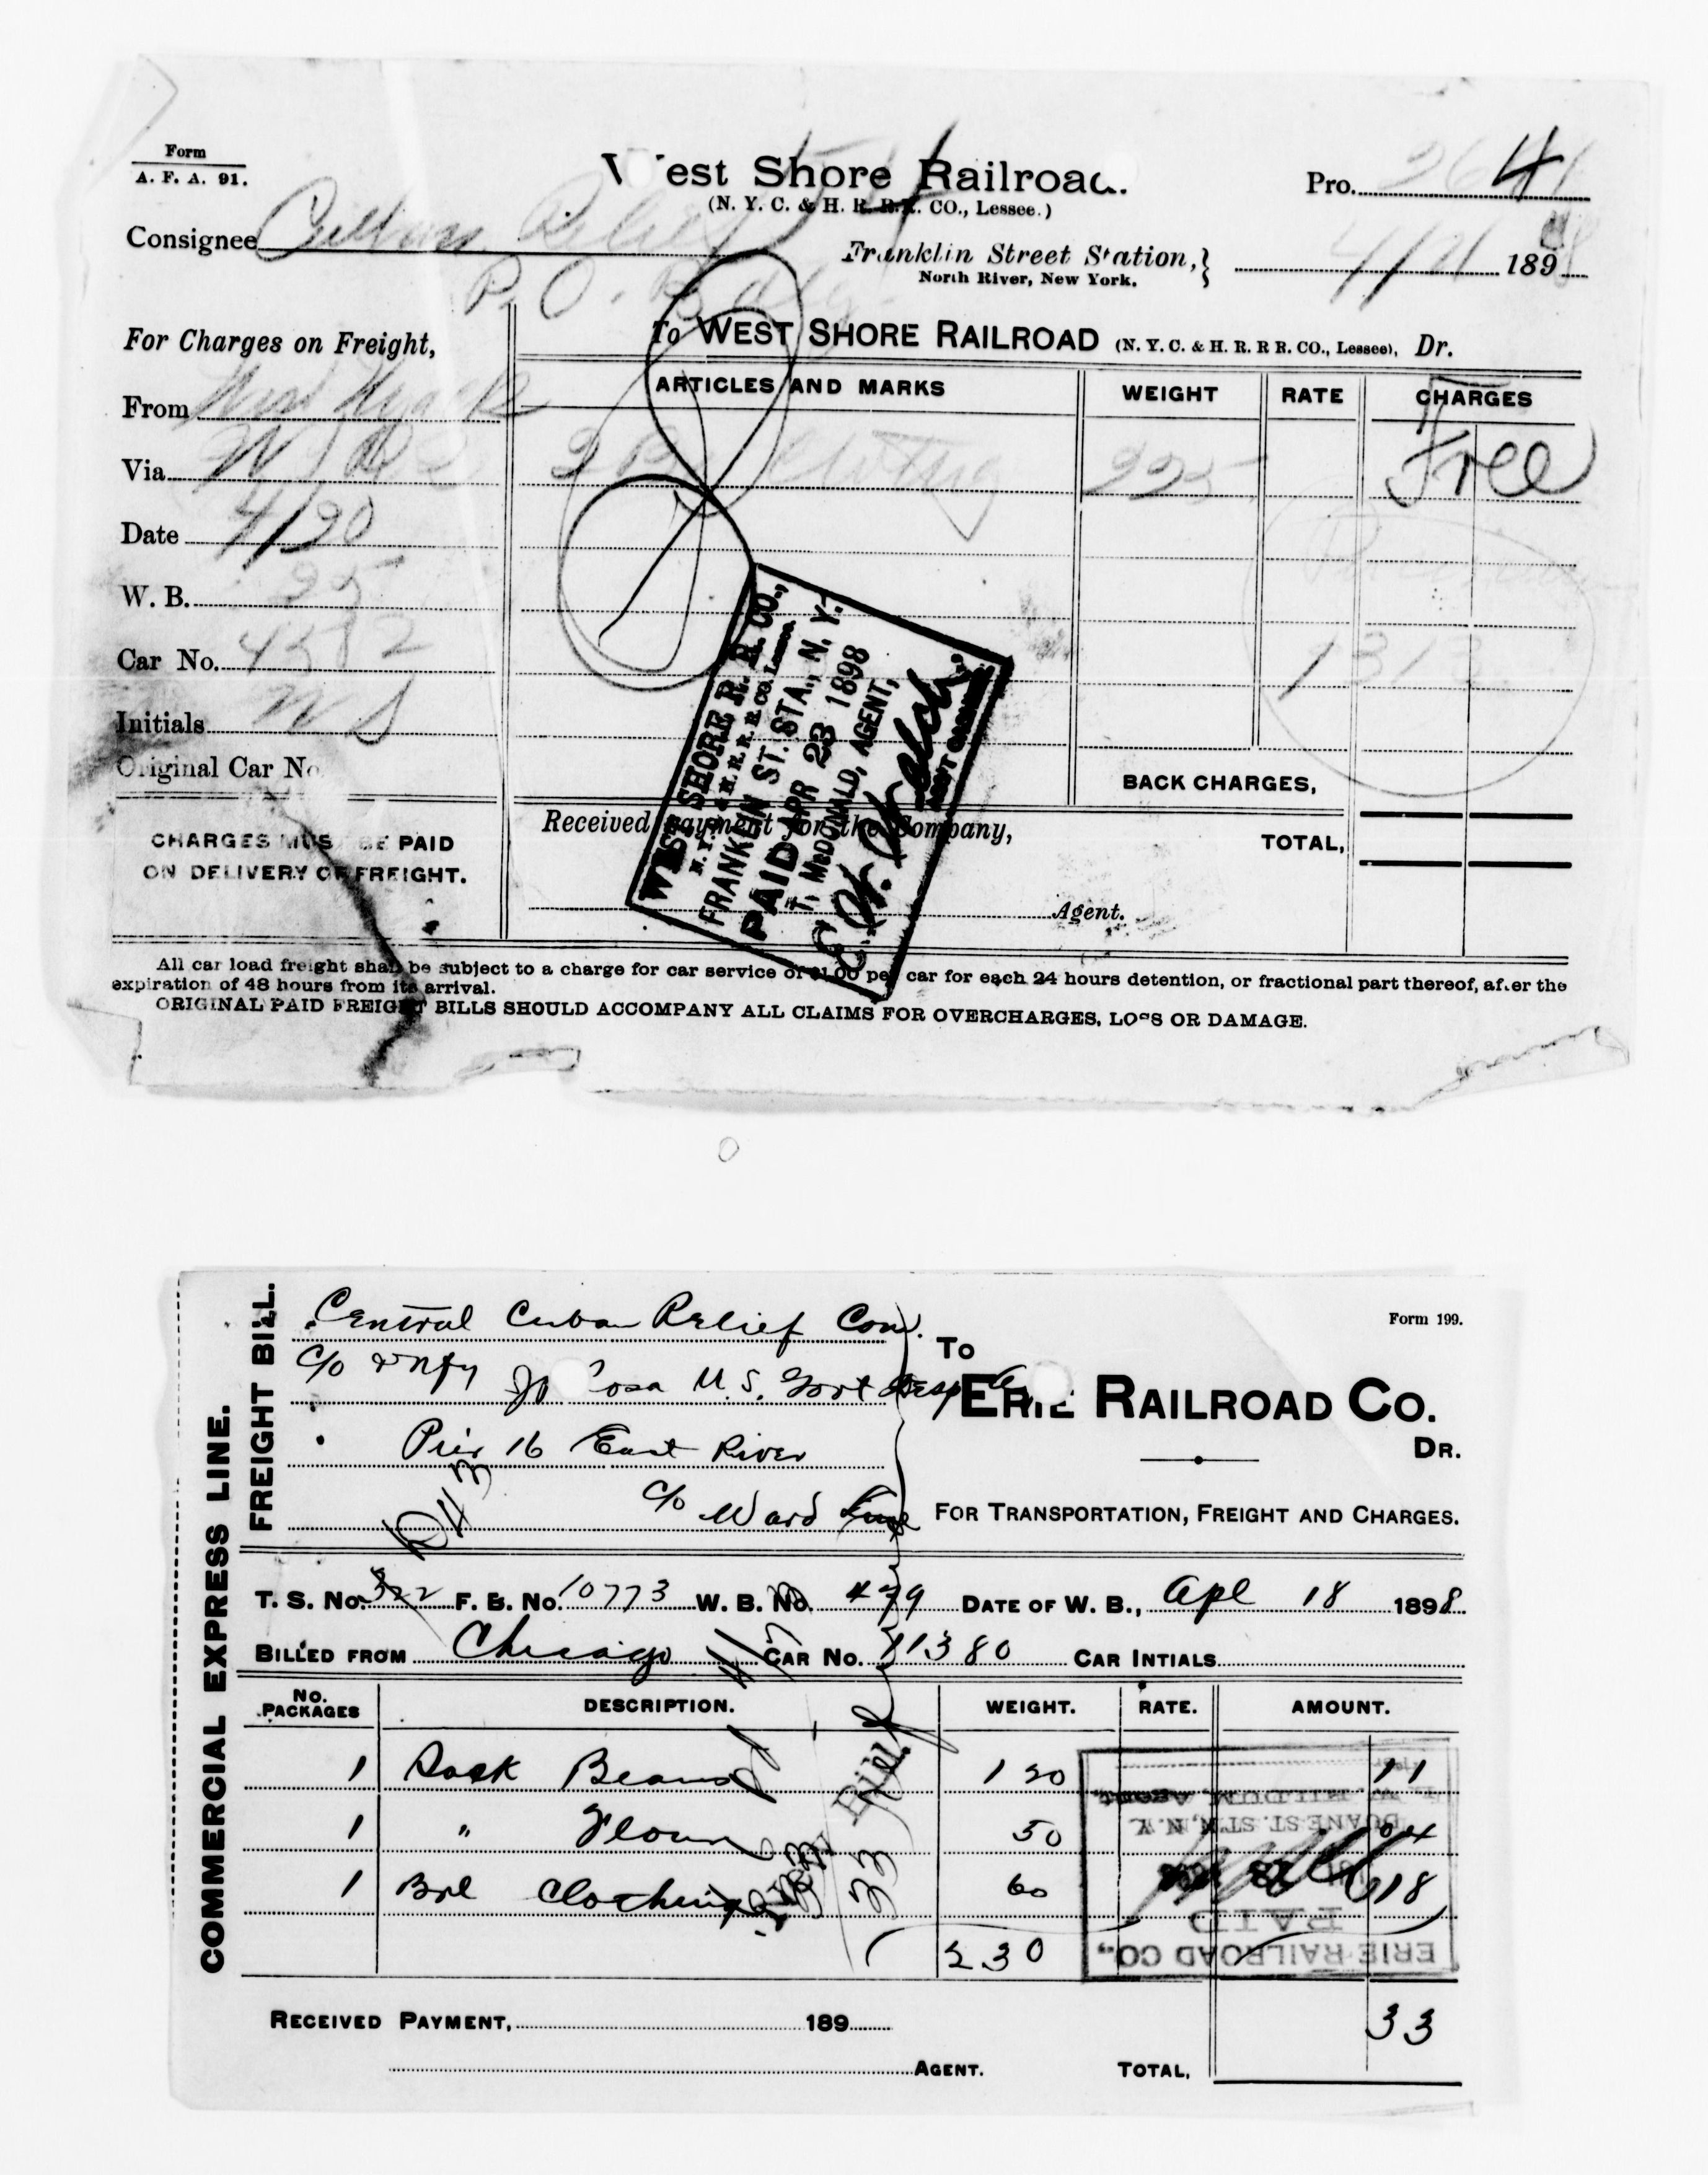 Form
A. F. A. 91.
West Shore Railroad.
(N. Y. C. & H. R. R.R. CO., Lessee.)
Pro. 4
Consignee Cuban Relief
P. O. Bldg
Franklin Street Station,
North River, New York.
4/21 1898
For Charges on Freight,
To WEST SHORE RAILROAD (N. Y. C. & H. R. R R. CO., Lessee), Dr.
ARTICLES AND MARKS WEIGHT RATE CHARGES
From
Via
2 Clothing 225 Free
Date 4/20
W. B. 25
Car No.
Initials W S
Original Car No
1313
BACK CHARGES,
CHARGES MUST BE PAID
ON DELIVERY OF FREIGHT.
Received payment for the Company,
TOTAL,
Agent.
WEST SHORE R. R. CO.,
N. Y. C. & H. R. R. R. CO. Lessee.
FRANKLIN ST. STA., N. Y.
PAID APR 23 1898
T. McDONALD, AGENT,
All car load freight shall be subject to a charge for car service of $1.00 per car for each 24 hours detention, or fractional part thereof, after the
expiration of 48 hours from its arrival.
ORIGINAL PAID FREIGHT BILLS SHOULD ACCOMPANY ALL CLAIMS FOR OVERCHARGES, LOSS OR DAMAGE.
COMMERCIAL EXPRESS LINE.
FREIGHT BILL.
Form 199.
Central Cuban Relief Com.
c/o & Nfy U. S. Govt Desp
Pier 16 East River
c/o Ward Line
To
ERIE RAILROAD CO.
DR.
FOR TRANSPORTATION, FREIGHT AND CHARGES.
T. S. No. 322 F. B. No. 10773 W. B. No. 479 DATE OF W. B., Apl 18 1898
BILLED FROM Chicago CAR No. 11380 CAR INTIALS
NO. PACKAGES DESCRIPTION. WEIGHT. RATE. AMOUNT.
1 Sack Beans 120 11
1 " Flour 50 04
1 Brl Clothing 60 18
230
ERIE RAILROAD CO.,
PAID
DUANE ST. STN. N. Y.
33
RECEIVED PAYMENT, 189
AGENT. TOTAL,
33